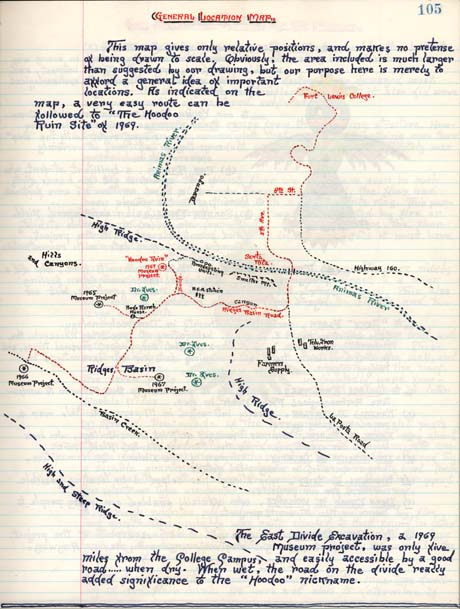 105
General Location Map.
This map gives only relative positions, and makes no pretense
of being drawn to scale. Obviously, the area included is much larger
than suggested by our drawing, but our purpose here is merely to
afford a general idea of important
locations. As indicated on the
map, a very easy route can be
followed to "The Hoodoo
Ruin Site" of 1969.
Fort Lewis College.
Animas River.
Durango.
8th St.
8th Ave.
High Ridge.
Hills
and Canyons.
"Hoodoo Ruin"
1969
Museum
Project
Santa
Rita.
Smelter Mt.
Highway 160.
Animas River
1965
Museum Project
Mt. Ives.
Ranch
House.
Canyon
Ridges Basin Road.
Mt. Ives.
Television
Works.
Farmers
Supply.
1966
Museum Project
Ridges Basin
1967
Museum Project.
Mt. Ives.
High Ridge.
La Posta Road
Basin Creek.
High and Steep Ridge.
The East Divide Excavation, a 1969
Museum project, was only five
miles from the College Campus, and easily accessible by a good
road..... when dry. When wet, the road on the divide really
added significance to the "Hoodoo" nickname.